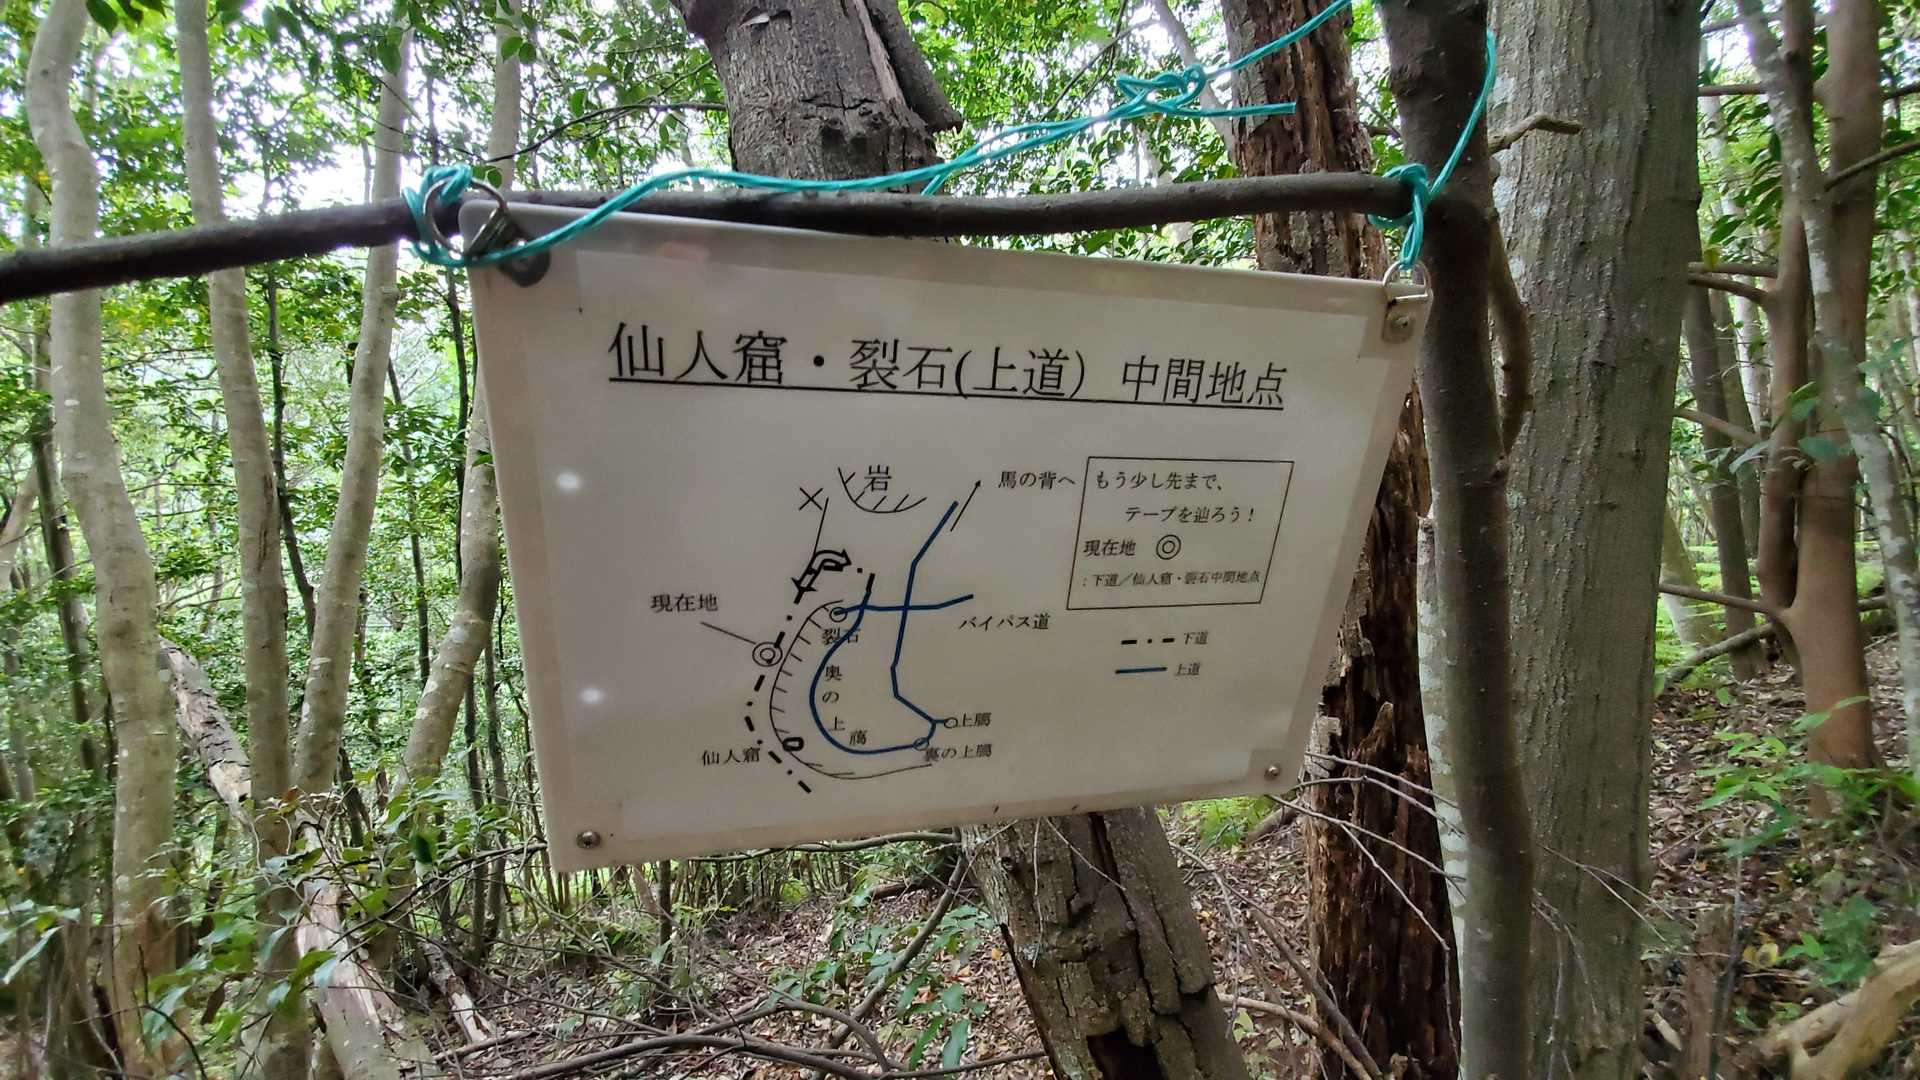 仙人窟・裂石(上道) 中間地点
岩
馬の背へ
もう少し先まで、
テープを辿ろう!
現在地 ◎
:下道/仙人窟・裂石中間地点
現在地
裂石
バイパス道
下道
上道
奥の上臈
上臈
裏の上臈
仙人窟